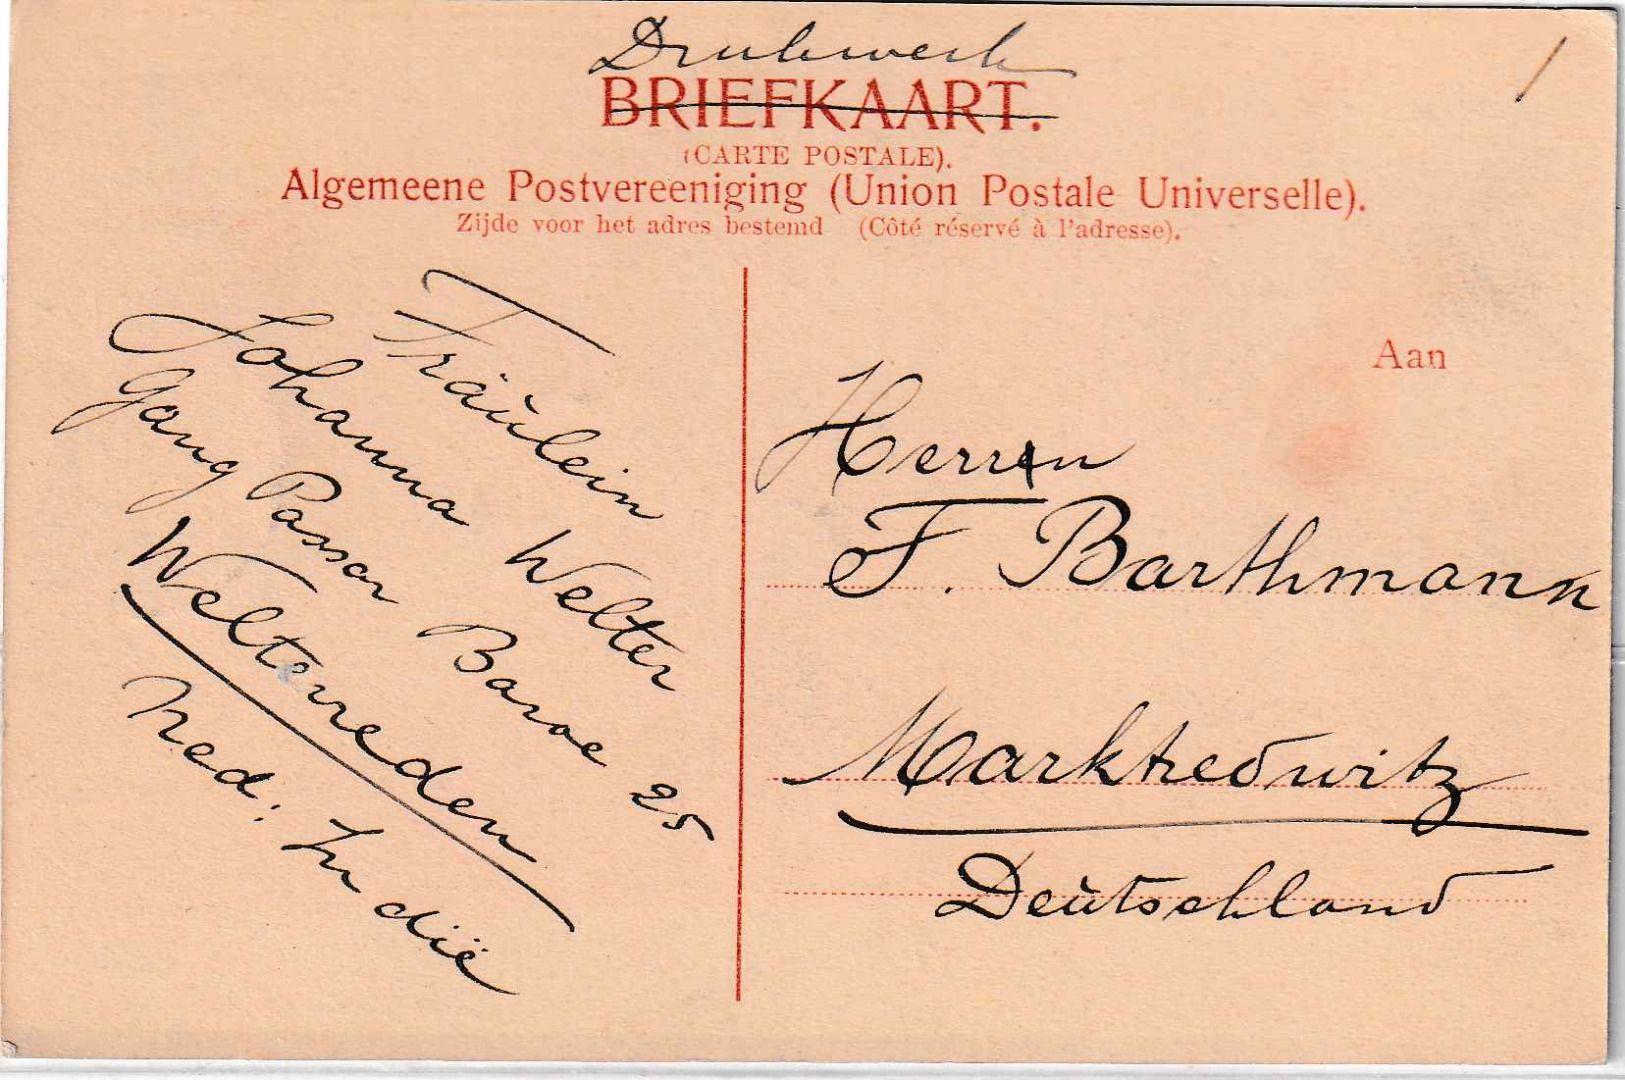 Drukwerk
BRIEFKAART.
(CARTE POSTALE).
Algemeene Postvereeniging (Union Postale Universelle).
Zijde voor het adres bestemd (Côté réservé à l'adresse).
Fräulein
Johanna Welter
Gang Passar Baroe 25
Weltevreden
Ned: Indië
Aan
Herrn
F. Barthmann
Marktredwitz
Deutschland